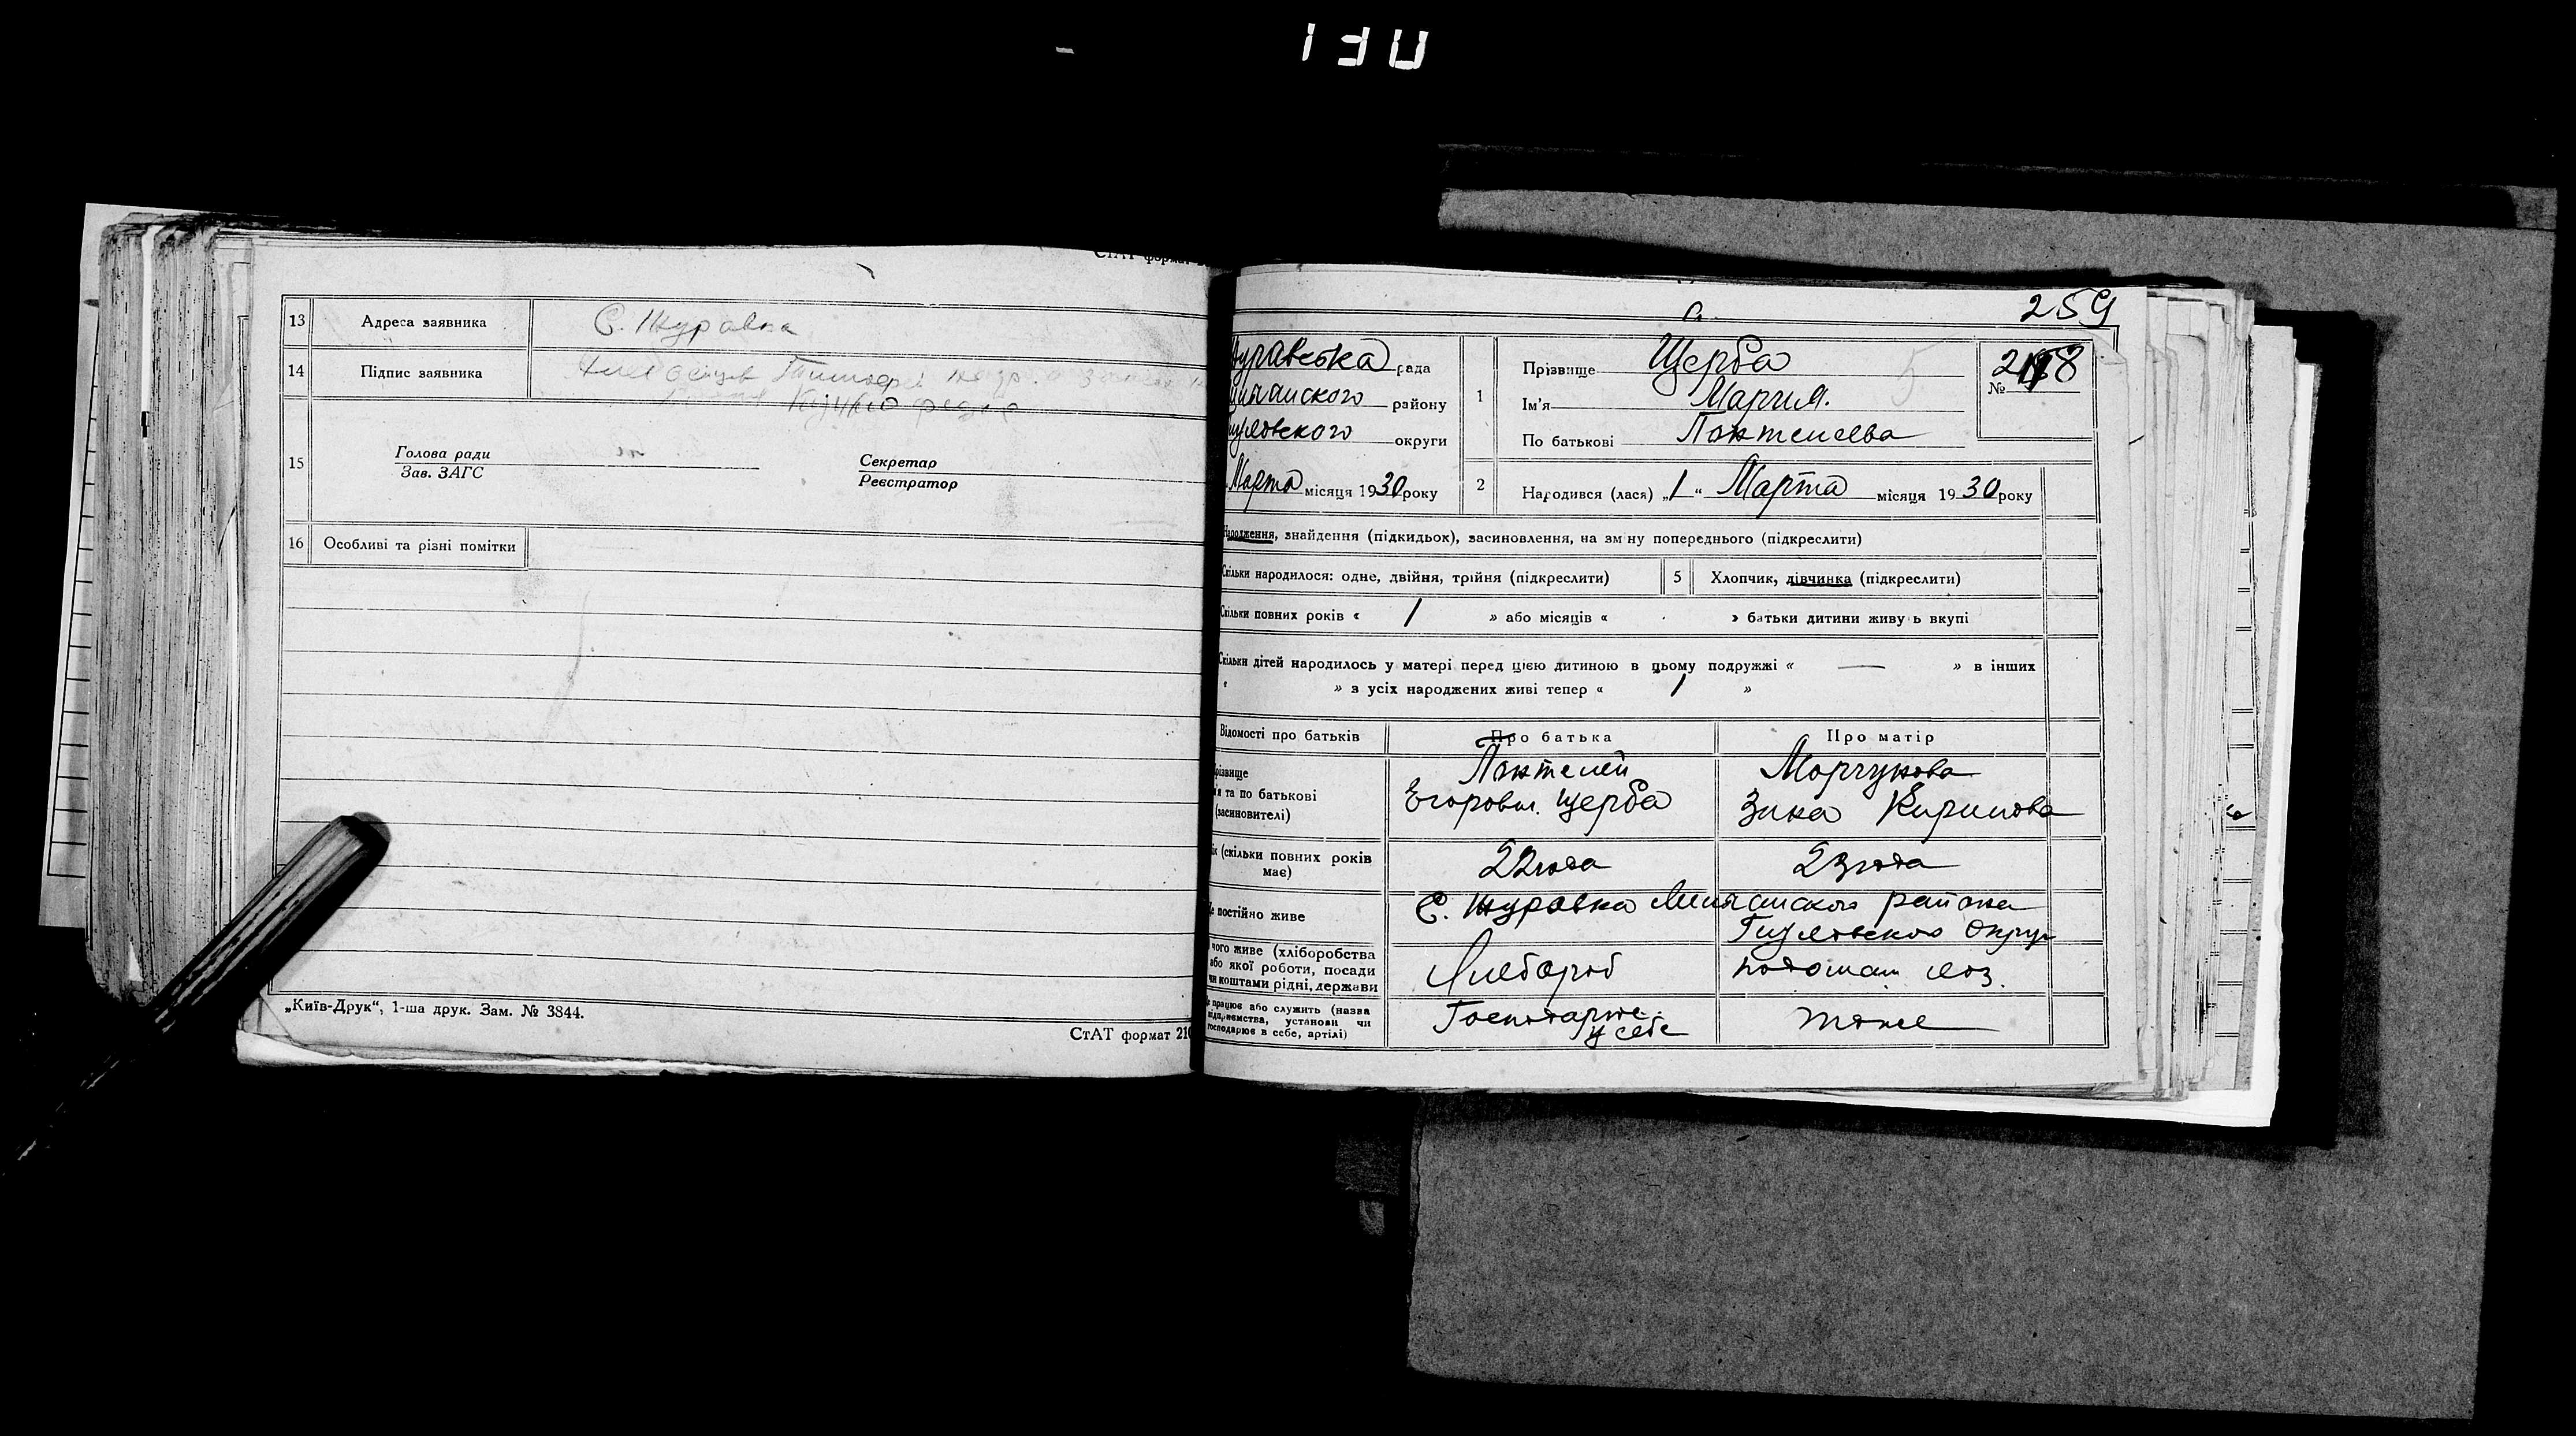 130
СтАТ формат
13 Адреса заявника С. Журавка
14 Підпис заявника Тимофей
15 Голова ради Секретар
Зав. ЗАГС Реєстратор
16 Особливі та різні помітки
„Київ-Друк“, 1-ша друк. Зам. № 3844.
СтАТ формат 210
259
уравська рада
района району
округи
Марта місяця 1930 року
1 Прізвище Щерба
Ім'я Мария.
По батькові Пантелеева
№ 218
2 Народився (лася) „1“ Марта місяця 1930 року
народження, знайдення (підкидьок), засиновлення, на зміну попереднього (підкреслити)
Скільки народилося: одне, двійня, трійня (підкреслити) 5 Хлопчик, дівчинка (підкреслити)
Скільки повних років « 1 » або місяців « » батьки дитини живуть вкупі
Скільки дітей народилось у матері перед цією дитиною в цьому подружжі « — » в інших
« » з усіх народжених живі тепер « 1 »
Відомості про батьків Про батька Про матір
різвище Пантелей Марчукова
'я та по батькові Егоров. Щерба Зина Кирилова
(засиновителі)
ік (скільки повних років має) 22 года 23 года
е постійно живе С. Журавка района
Округ
чого живе (хліборобства
або якої роботи, посади Хлебороб
чи коштами рідні, держави
е працює або служить (назва
підприємства, установи чи у себе тоже
господарює в себе, артілі)